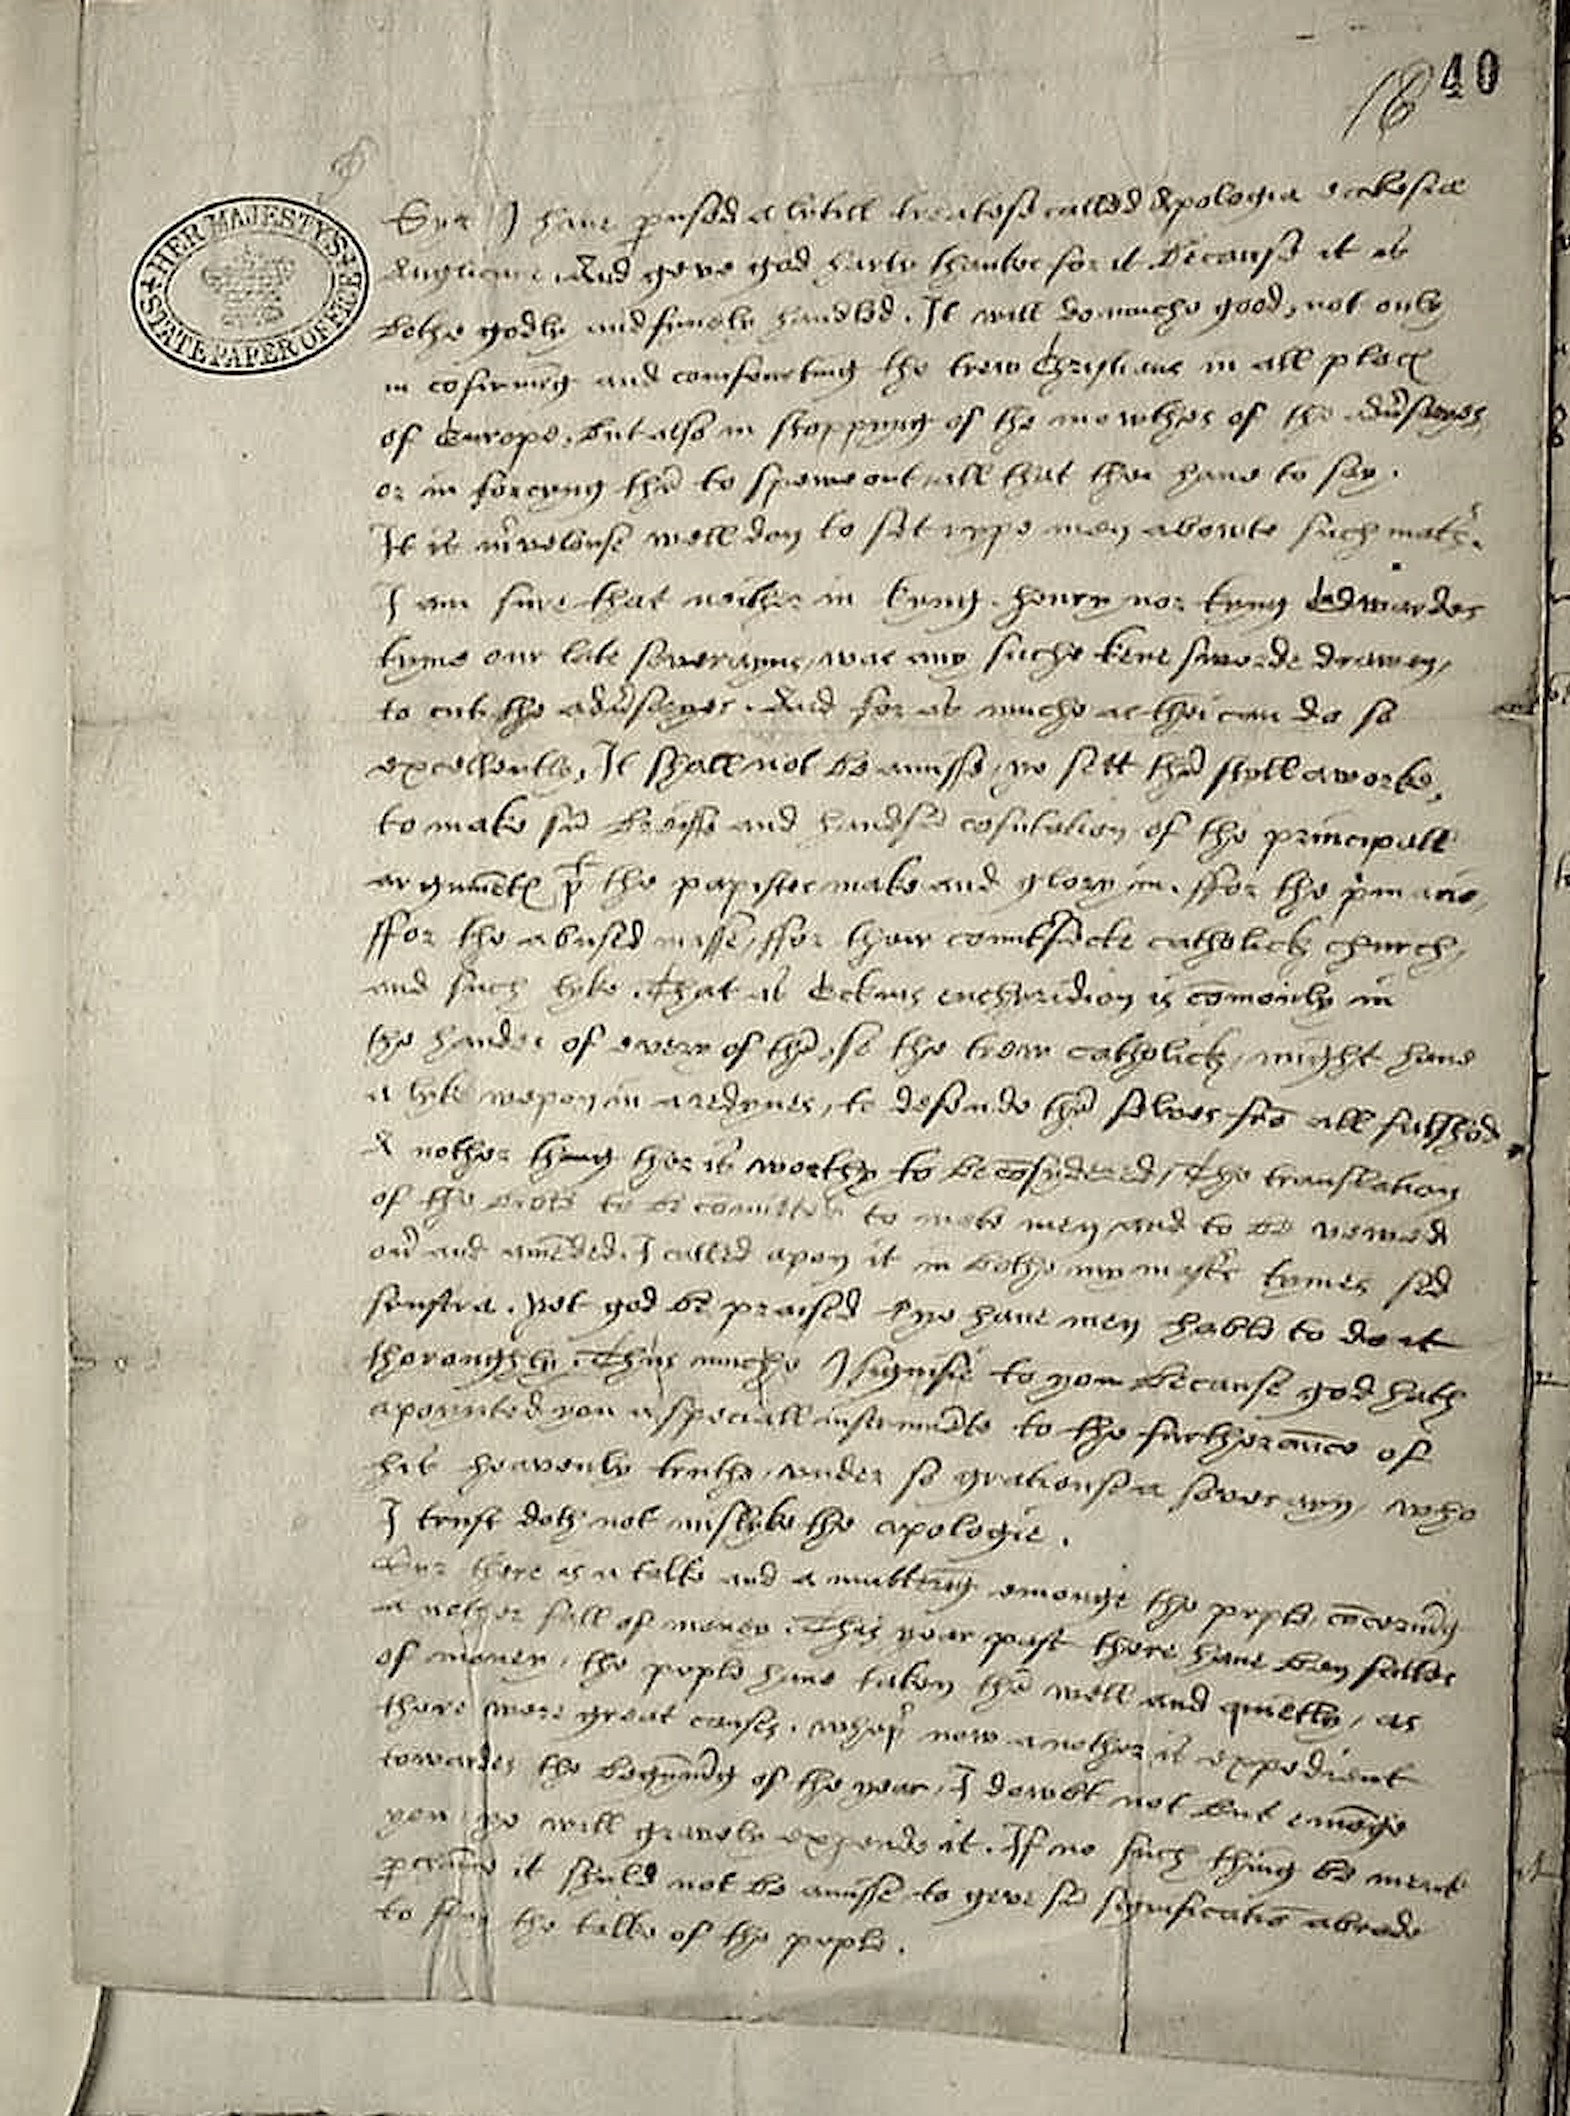 40
HER MAJESTY'S STATE PAPER OFFICE
Syr I have p̲used a lytill treatese called Apologia ecclesiæ
Anglicane. And geve god harty thankes for it because it is
bothe godly and fynely handled. It will do muche good, not only
in cōfirmīg and comfourting the trew Christians in all places
of Europe, but also in stoppyng of the mowthes of the adūsaryes
or in forcyng thē to spewe out all that thei have to sey.
It is m̄velouse well don to set rype men abowte such matt̄s.
I am sure that neither in kyng henry nor kyng Edwardes
tyme our late soveraynes, was any suche kene sworde drawen,
to cut the adūsaryes. And for as muche as thei can do so
excellently, It shall not be amisse, ye sett thē styll a worke,
to make sū breiffe and handsū cōfutation of the principall
argumētes yt the papistes make and glory in. ffor the p̄macie,
ffor the abused masse, ffor theyr countrfecte catholick church,
and such lyke. That as Eckius encheridion is cōmonly in
the handes of every of thē, so the trew catholick, might have
a lyke wepon in aredynes, to defende thē selves frō all falshod.
A nother thing ther is worthy to be cōsydered, The translation
of the bible to be cōmitted to mete men and to be vewed
oū and amēded. I called apon it in bothe my mastr̄s tymes sed
frustra. yet god be praised ye have men hable to do it
thoroughly. Thus muche I signifie to you because god hath
apoynted you a speciall instrumēte to the furtherāuce of
his heavenly truthe, under so gratiouse a soverayn, who
I trust doth not mislyke the apologie.
Syr there is a talke and a mutterīg emonge the peple, cōcernīg
a nother fall of money. This year past there have ben falles
of money, the peple have taken thē well and quietly, as
there were great causes. whey now a nother is expedient
towardes the begynnīg of the year, I dowbt not but emōge
you ye will gravely expende it. If no such thing be ment
p̲chaunce it shuld not be amisse to geve sū significatiō abrode
to stay the talke of the peple.